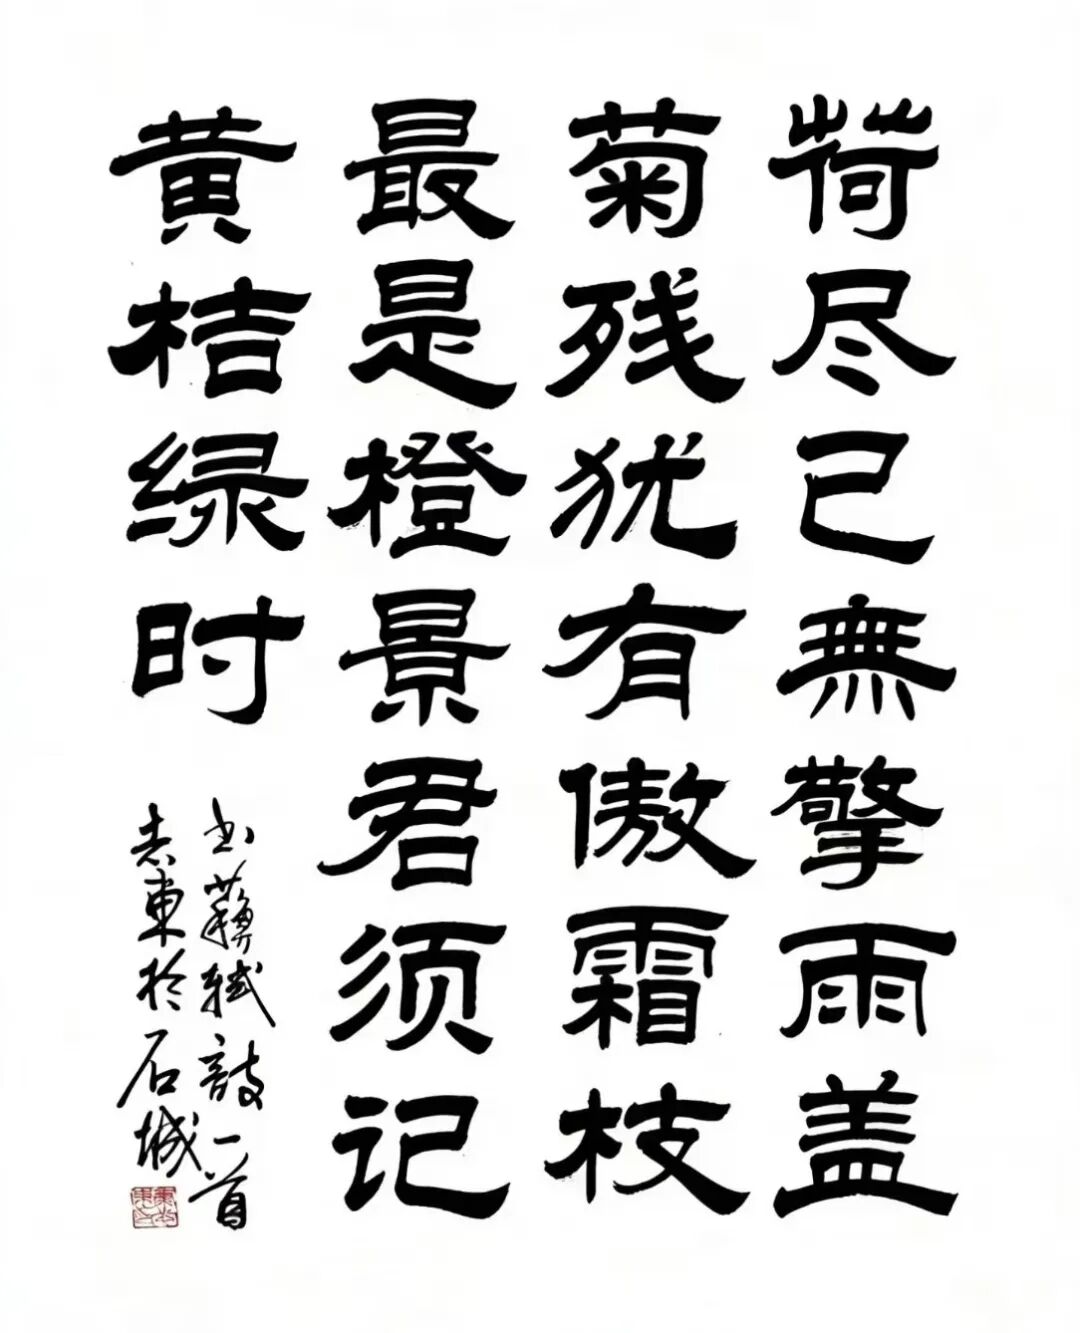 荷尽已無擎雨盖
菊残犹有傲霜枝
最是橙景君须记
黄桔绿时
书蘇轼詩一首
志東於石城